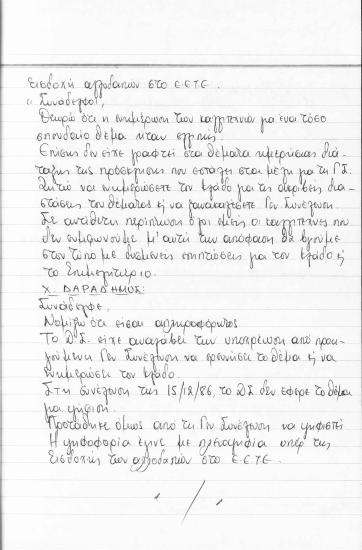 Εισδοχή αλλοδαπών στο Ε.Ε.Τ.Ε.
" Συνάδελφοι,
Θεωρώ ότι η ενημέρωση των καλλιτεχνών για ένα τόσο
σπουδαίο θέμα ήταν ελλιπής.
Επίσης δεν είχε γραφτεί στα θέματα ημερήσιας διά-
ταξης της πρόσκλησης που εστάλει στα μέλη για τη Γ.Σ.
Ζητώ να ενημερώσετε τον κλάδο για τις ακριβείς δια-
στάσεις του θέματος ή να ξανακαλέσετε Γεν. Συνέλευση.
Σε αντίθετη περίπτωση όλοι εμείς οι καλλιτέχνες που
δεν συμφωνούμε μ' αυτή την απόφαση θα βγούμε
στον τύπο με δυσμενείς επιπτώσεις για τον κλάδο ή
το Επιμελητήριο.
Χ. ΔΑΡΑΔΗΜΟΣ:
Συνάδελφε,
Νομίζω ότι είσαι απληροφόρητος
Το Δ.Σ. είχε αναλάβει την υποχρέωση από προη-
γούμενη Γεν. Συνέλευση να ερευνήσει το θέμα ή να
ενημερώσει τον κλάδο.
Στη συνέλευση της 15/12/86, το Δ.Σ. δεν έφερε το θέμα
για ψήφιση.
Προτάθηκε όμως από τη Γεν. Συνέλευση να ψηφιστεί
Η ψηφοφορία έγινε με πλειοψηφία υπέρ της
Εισδοχής των αλλοδαπών στο Ε.Ε.Τ.Ε.